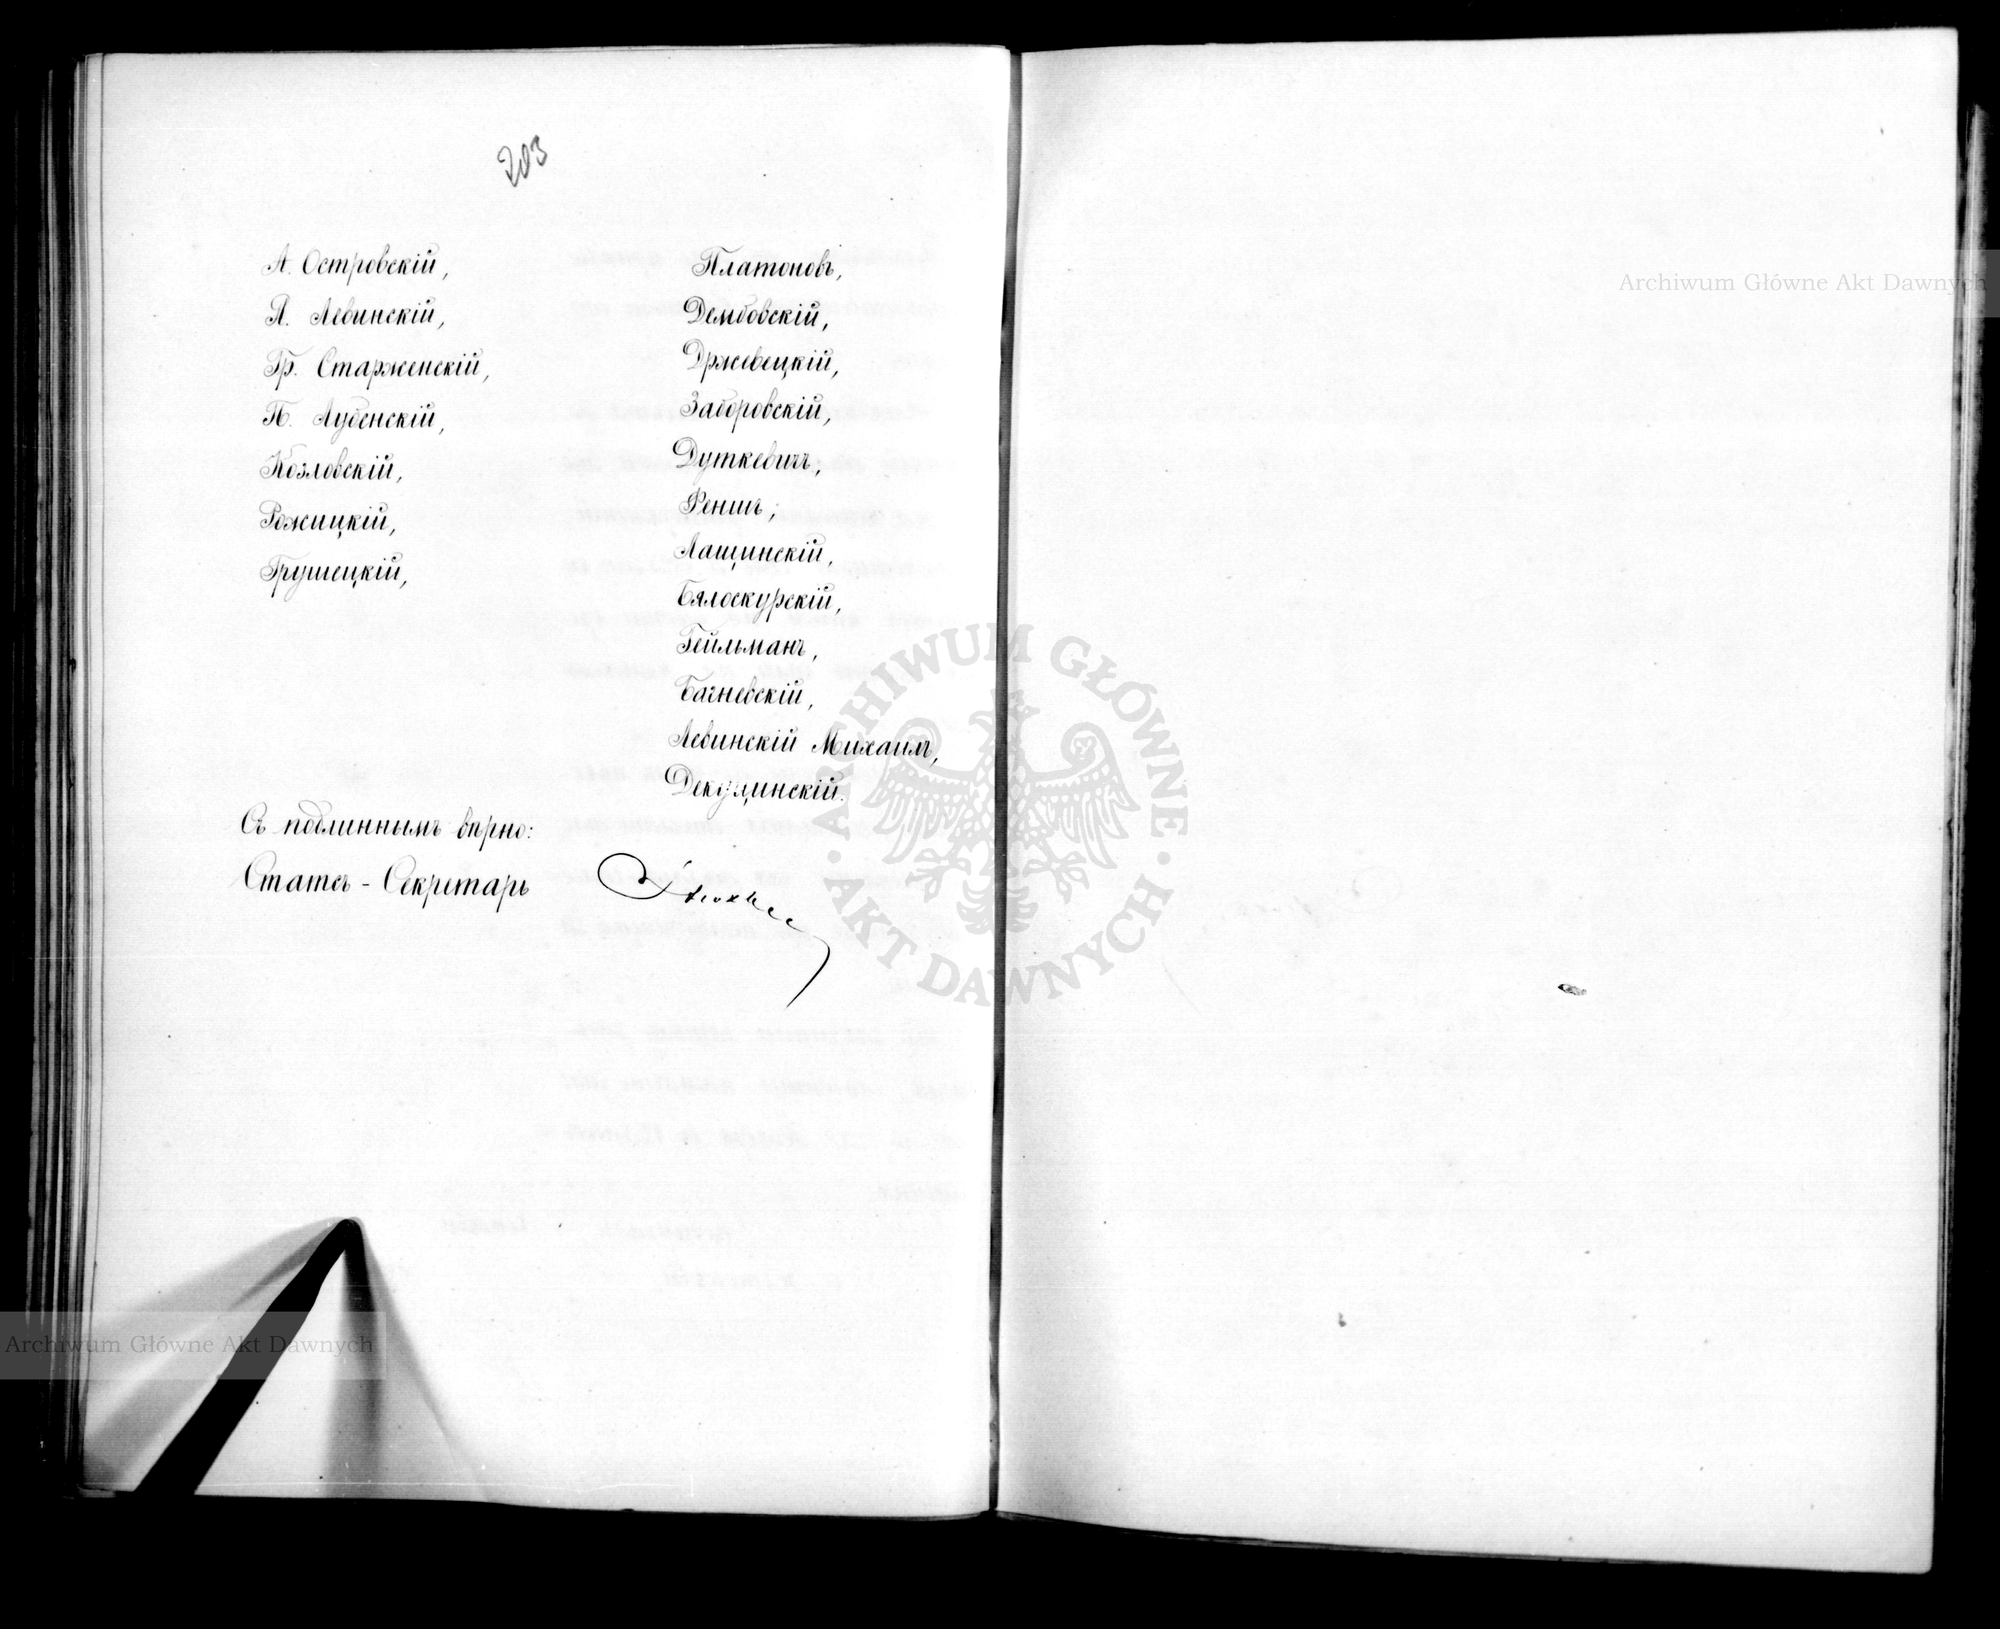 203
А. Островскій,
Л. Левинскій,
Гр. Старженскій,
П. Лубенскій,
Козловскій,
Рожицкій,
Грушецкій,
Платоновъ,
Дембовскій,
Држевецкій,
Заборовскій,
Дуткевичъ,
Феншъ,
Лащинскій,
Бялоскурскій,
Гейльманъ,
Багневскій,
Левинскій Михаилъ,
Декуцинскій.
Съ подлиннымъ вѣрно:
Статсъ-Секретарь
ARCHIWUM GŁÓWNE
AKT DAWNYCH
Archiwum Główne Akt Dawnych
Archiwum Główne Akt Dawnych